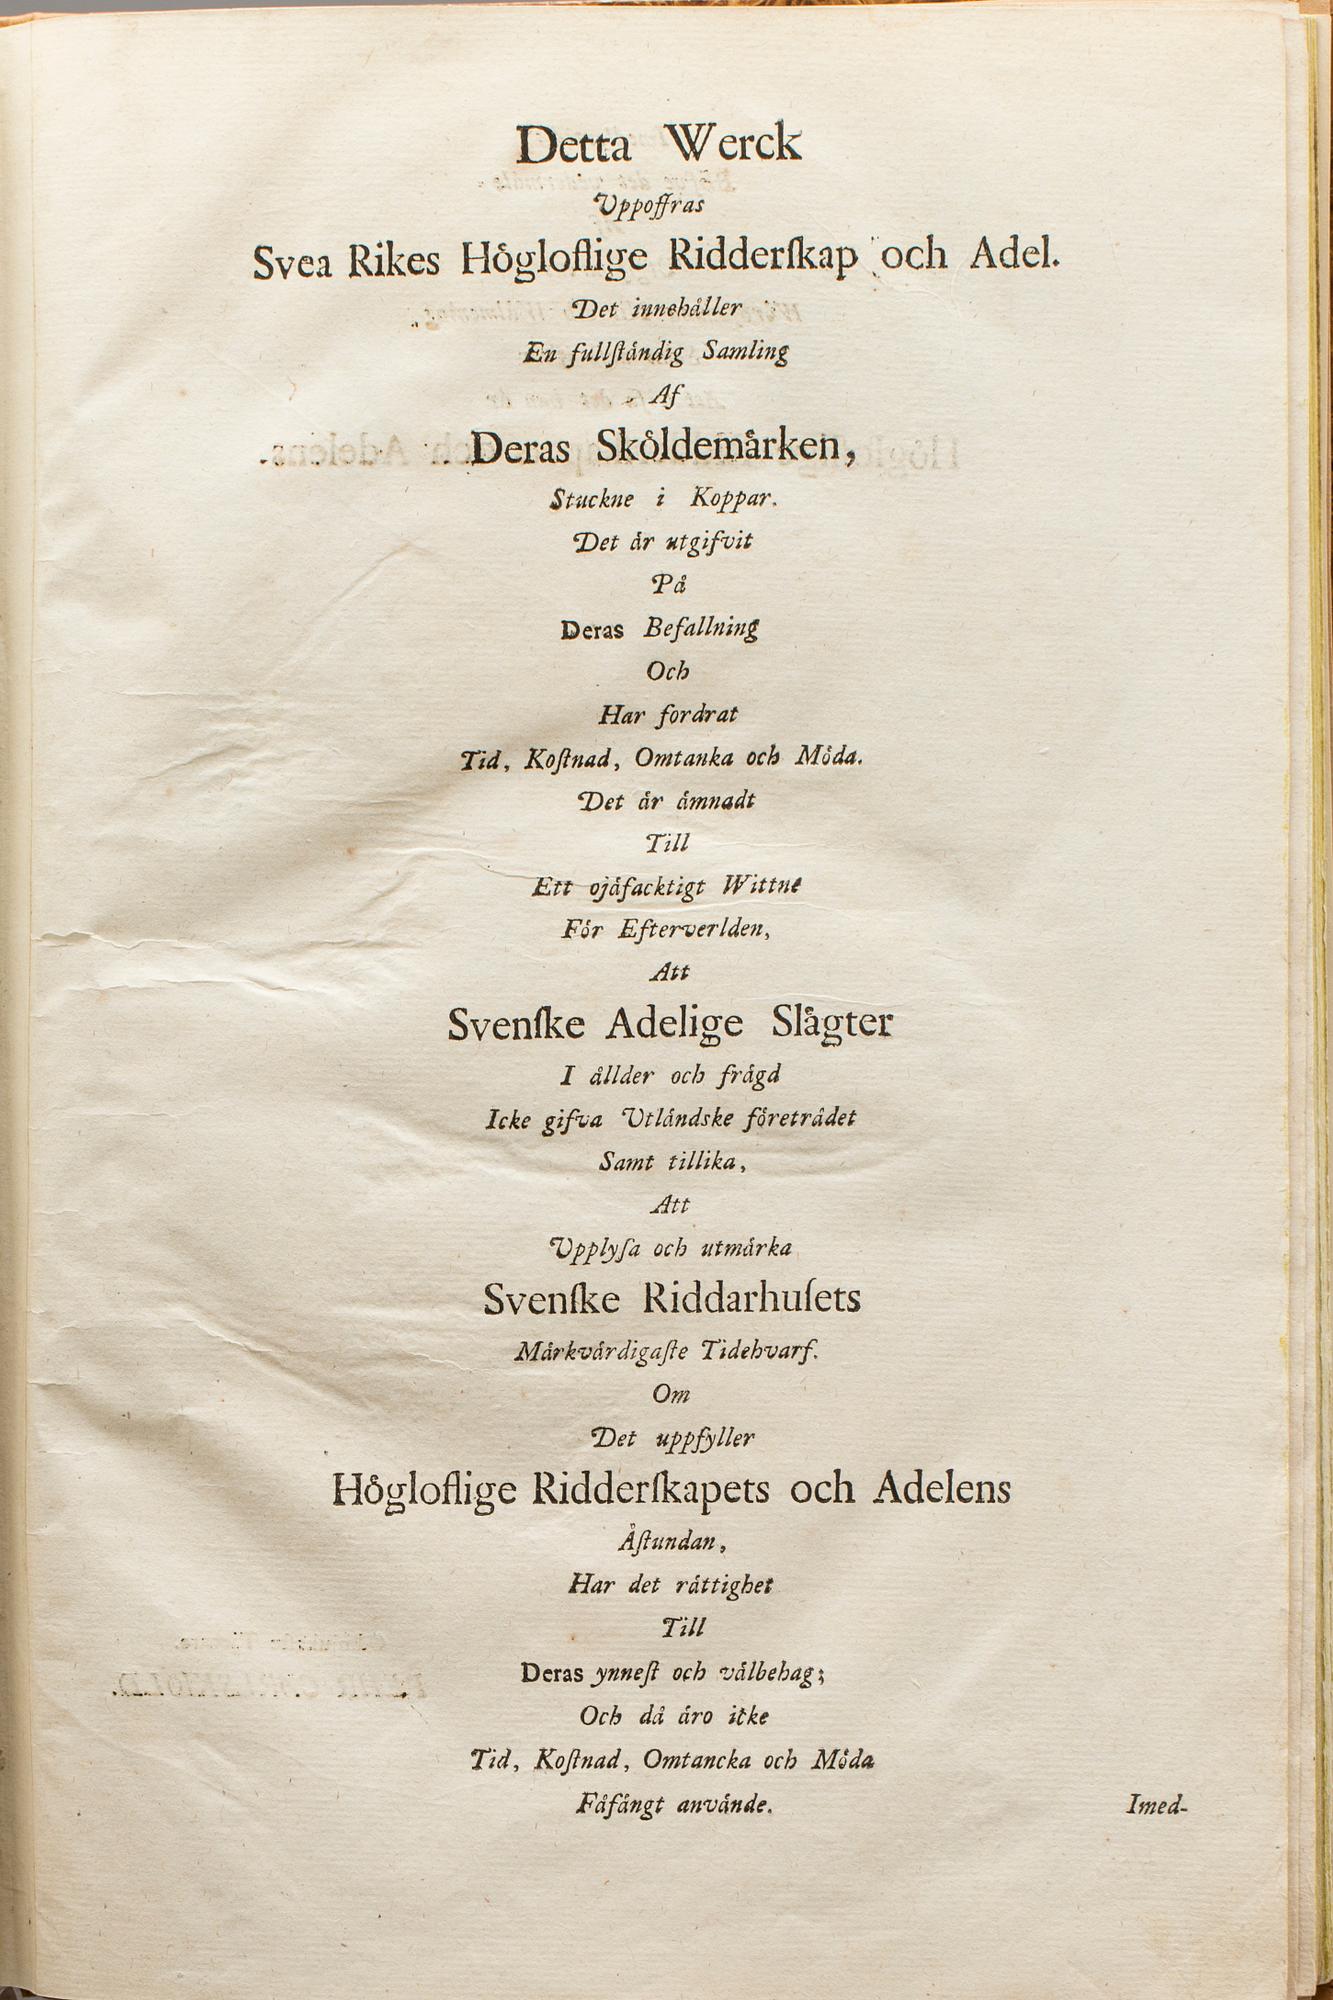 Detta Werck
Uppoffras
Svea Rikes Höglofl​ige Ridderſkap och Adel.
Det innehåller
En fullſtändig Samling
Af
Deras Sköldemärken,
Stuckne i Koppar.
Det är utgifvit
På
Deras Befallning
Och
Har fordrat
Tid, Koſtnad, Omtanka och Möda.
Det är ämnadt
Till
Ett ojäfacktigt Wittne
För Efterverlden,
Att
Svenſke Adelige Slägter
I ållder och frägd
Icke gifva Utländske företrädet
Samt tillika,
Att
Upplyſa och utmärka
Svenſke Riddarhuſets
Märkvärdigaſte Tidehvarf.
Om
Det uppfyller
Högloflige Ridderſkapets och Adelens
Åſtundan,
Har det rättighet
Till
Deras ynneſt och välbehag;
Och då äro icke
Tid, Koſtnad, Omtancka och Möda
Fåfängt använde.
Imed-